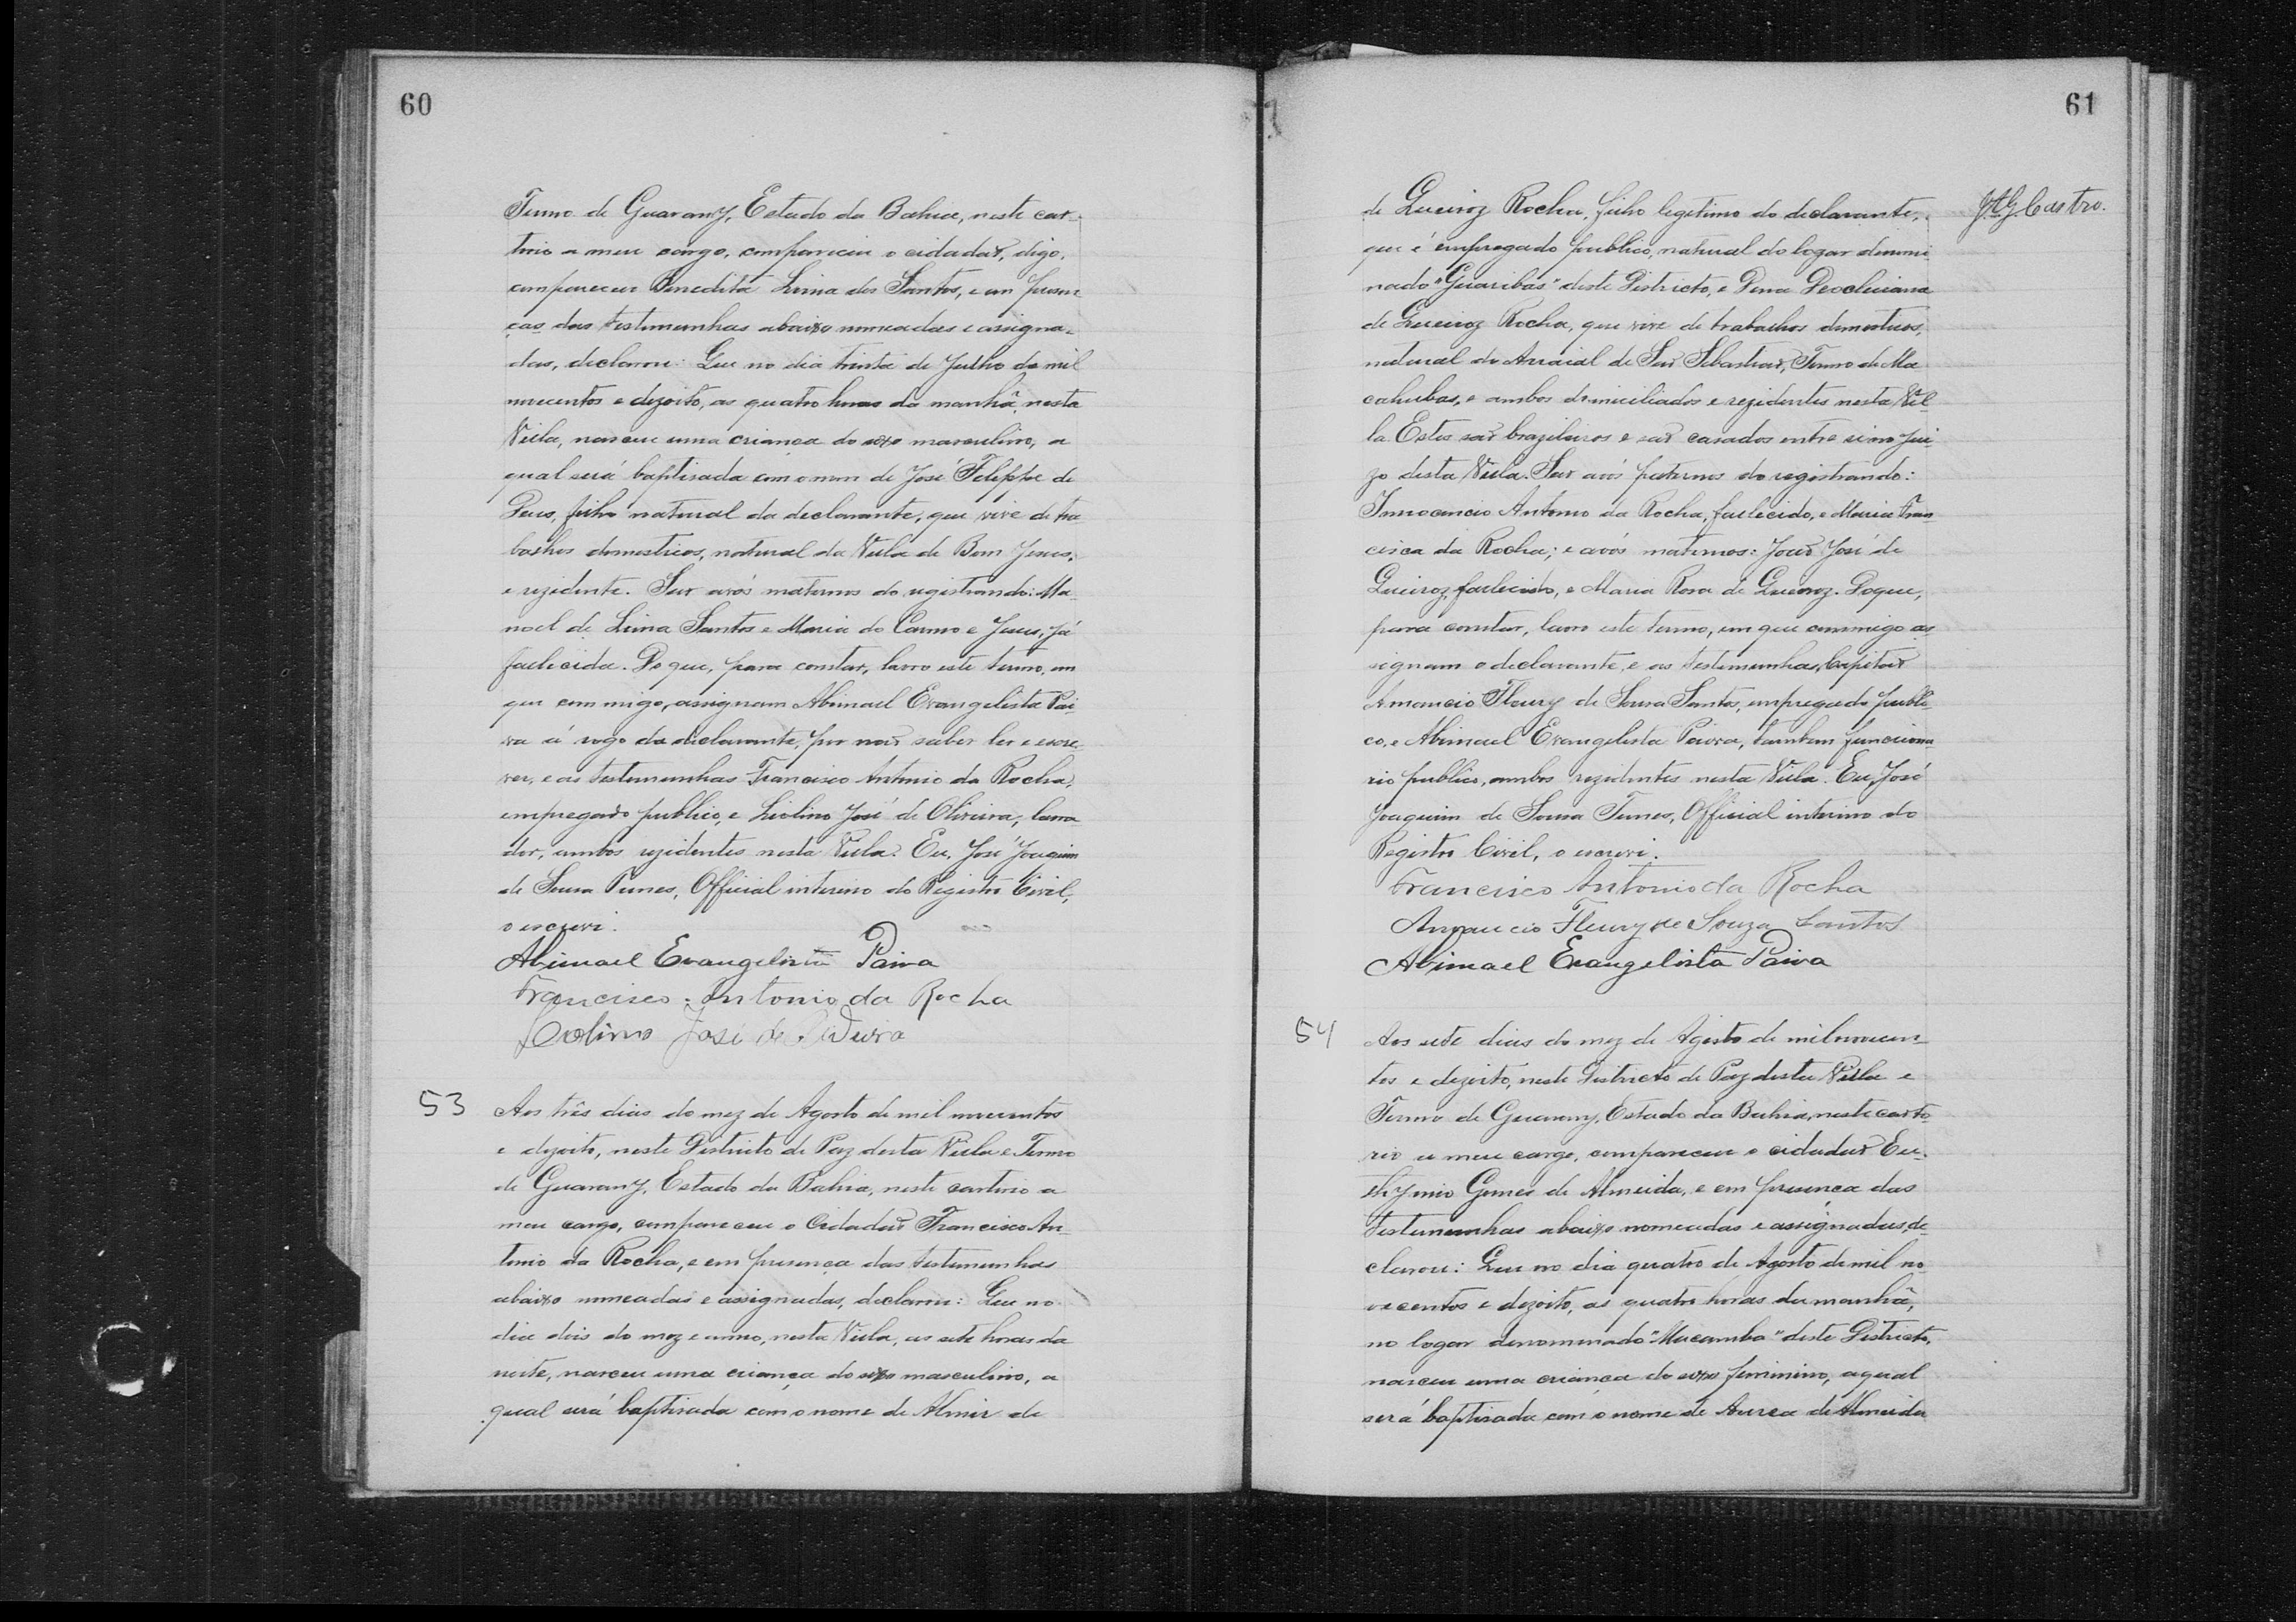 60
Termo de Guarany, Estado da Bahia, neste car-
torio a meu cargo, compareceu o cidadão, digo,
compareceu Benedita Lima dos Santos, e em presen
ças das testimunhas abaixo nomeadas e assigna-
das, declarou: Que no dia trinta de Julho de mil
novecentos e dezoito, as quatro horas da manhã, nesta
Villa, nasceu uma criança do sexo masculino, a
qual será baptisada com o nome de José Felippe de
Deus, filho natural da declarante, que vive de tra
balhos domesticos, natural da Villa de Bom Jesus,
e rezidente. São avós maternos do registrando: Ma-
noel de Lima Santos e Maria do Carmo e Jesus, já
fallecida. Do que, para constar, lavro este termo, em
que commigo, assignam Abimael Evangelista Pai-
va á rogo da declarante, por não saber ler e escre-
ver, e as testimunhas Francisco Antonio da Rocha,
empregado publico, e Liolino José de Oliveira, lavra
dor, ambos rezidentes nesta Villa. Eu, José Joaquim
de Sousa Tunes, Official interino do Registro Civil,
o escrevi.
Abimael Evangelista Paiva
Francisco Antonio da Rocha
Liolino José de Oliveira
53 Aos três dias do mez de Agosto de mil novecentos
e dezoito, neste Districto de Paz desta Villa e Termo
de Guarany, Estado da Bahia, neste cartorio a
meu cargo, compareceu o Cidadão Francisco An-
tonio da Rocha, e em presença das testimunhas
abaixo nomeadas e assignadas, declarou: Que no
dia dois do mez e anno, nesta Villa, as sete horas da
noite, nasceu uma criança do sexo masculino, a
qual será baptisada com o nome de Almir de
61
de Queiroz Rocha, filho legitimo do declarante,
que é empregado publico, natural do logar denomi
nado "Guaribas" deste Districto, e Dona Deocleciana
de Queiroz Rocha, que vive de trabalhos domesticos,
natural do Arraial de São Sebastião, Termo de Ma
cahubas, e ambos domiciliados e rezidentes nesta Vil-
la. Estes são brazileiros e são casados entre si no Jui
zo desta Villa. São avós paternos do registrando:
Innocencio Antonio da Rocha, fallecido, e Maria Fran
cisca da Rocha; e avós maternos: João José de
Queiroz, fallecido, e Maria Rosa de Queiroz. Do que,
para constar, lavro este termo, em que commigo as
signam o declarante, e as testimunhas, Capitão
Amancio Fleury de Sousa Santos, empregado publi-
co, e Abimael Evangelista Paiva, tambem funcciona
rio publico, ambos rezidentes nesta Villa. Eu, José
Joaquim de Sousa Tunes, Official interino do
Registro Civil, o escrevi.
Francisco Antonio da Rocha
Amancio Fleury de Souza Santos
Abimael Evangelista Paiva
54 Aos sete dias do mez de Agosto de mil novecen-
tos e dezoito, neste Districto de Paz desta Villa e
Termo de Guarany, Estado da Bahia, neste carto-
rio a meu cargo, compareceu o cidadão Eu-
thymio Gomes de Almeida, e em presença das
testimunhas abaixo nomeadas e assignadas, de-
clarou: Que no dia quatro de Agosto de mil no-
vecentos e dezoito, as quatro horas da manhã,
no logar denominado "Mucambo" deste Districto,
nasceu uma criança do sexo feminino, a qual
será baptisada com o nome de Aurea de Almeida
Castro.